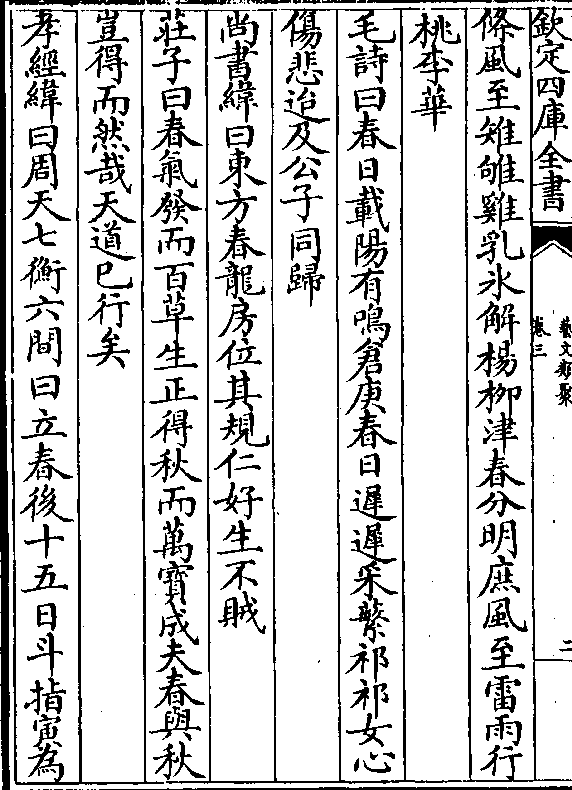 欽定四庫全書
藝文類聚
卷三
二
條風至雉雊雞乳氷解楊柳津春分明庶風至雷雨行
桃李華
毛詩曰春日載陽有鳴倉庚春日遲遲采蘩祁祁女心
傷悲迨及公子同歸
尚書緯曰東方春龍房位其規仁好生不賊
莊子曰春氣發而百草生正得秋而萬寶成夫春與秋
豈得而然哉天道已行矣
孝經緯曰周天七衡六間曰立春後十五日斗指寅為